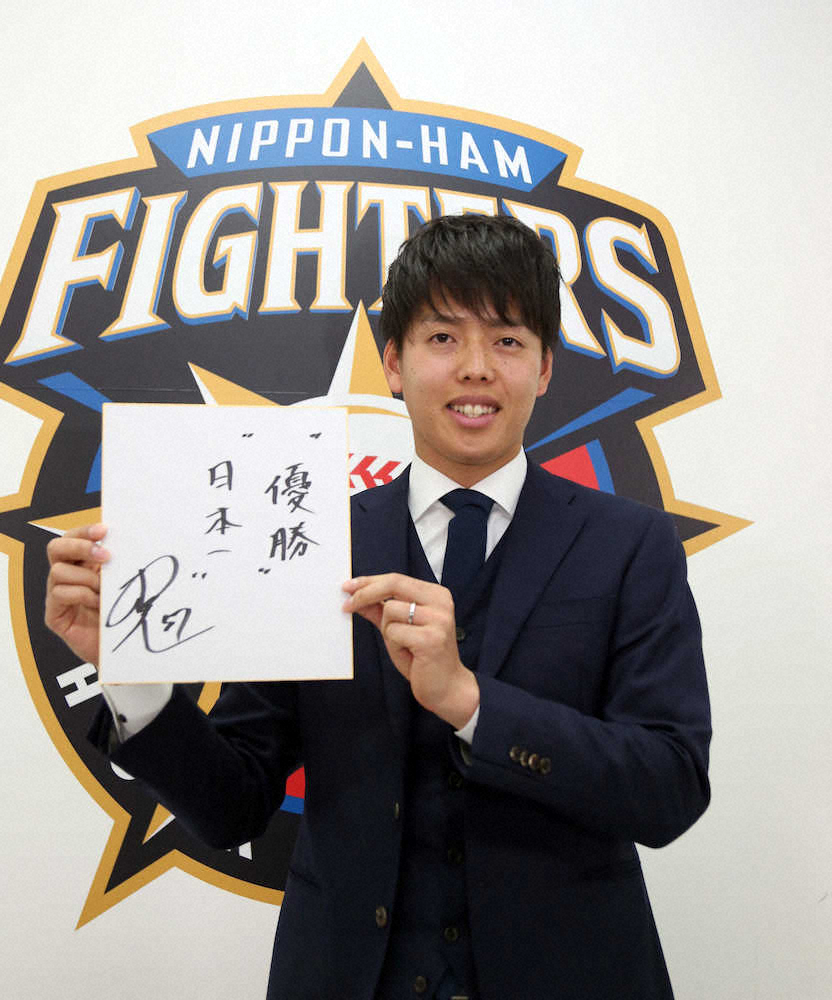 NIPPON-HAM
FIGHTERS
"優勝"
"日本一"
57